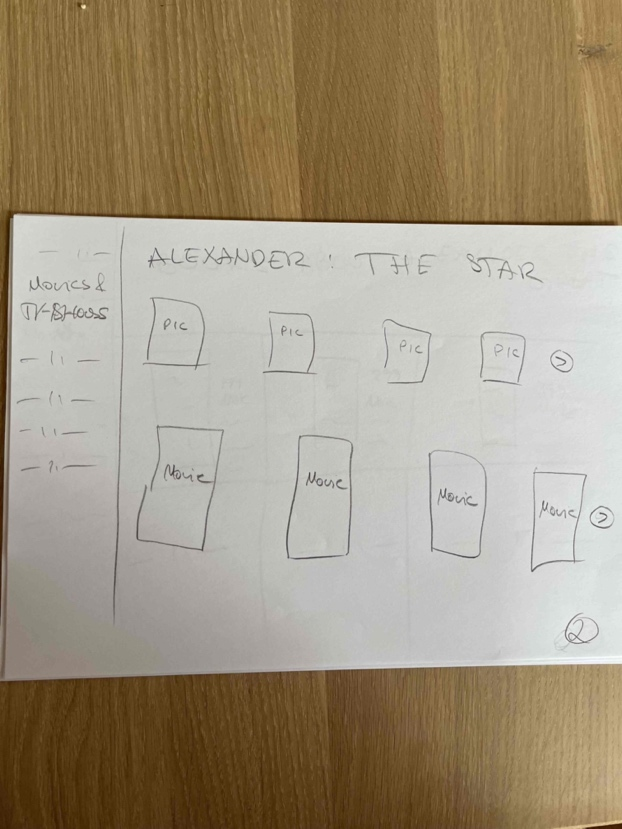 — 11 —
Movies &
TV-Shows
— 11 —
— 11 —
— 11 —
— 11 —
ALEXANDER: THE STAR
PIC PIC PIC PIC >
Movie Movie Movie Movie >
2